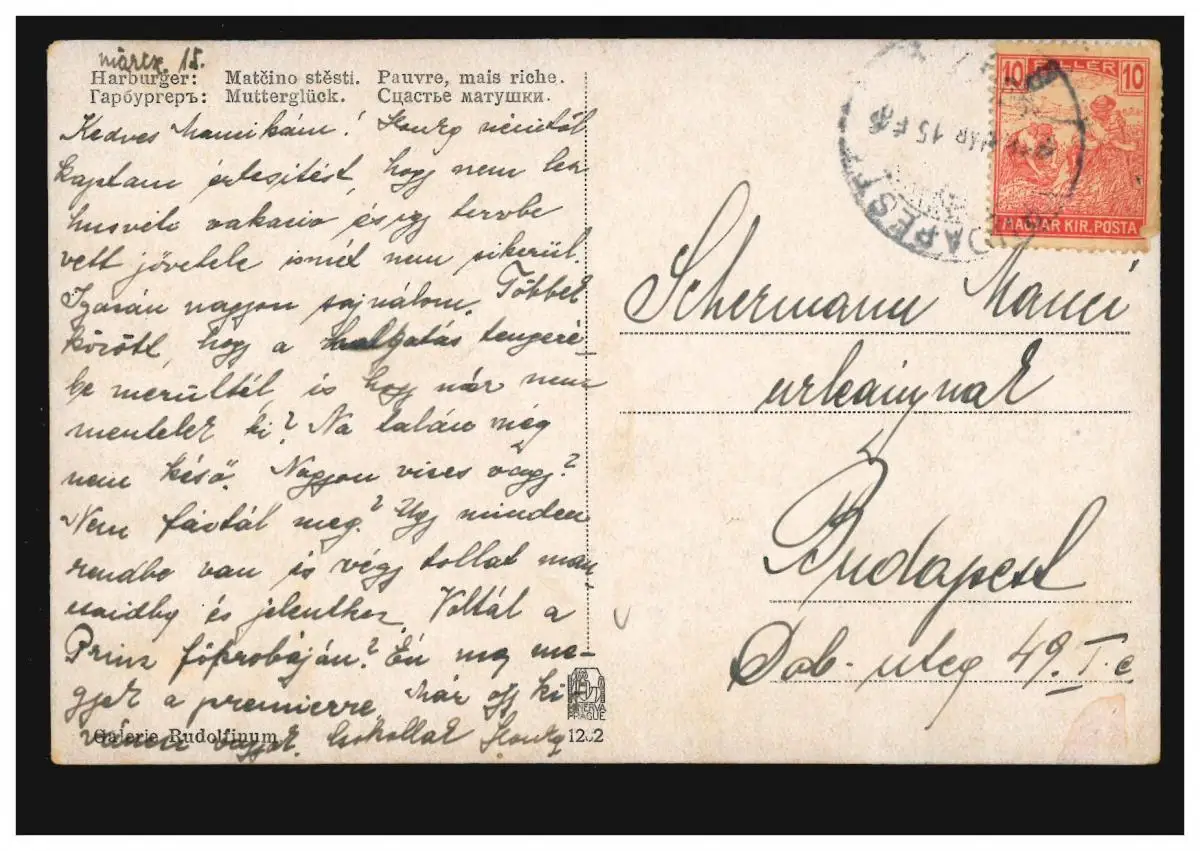 márcz 15.
Harburger: Matčino stěsti. Pauvre, mais riche.
Гарбургеръ: Mutterglück. Сцастье матушки.
Kedves Mancikám! nénitől
kaptam értesitést, hogy nem lesz
husveti vakacio és igy tervbe
vett jövetele ismét nem sikerül.
Igazán nagyon sajnálom. Többek
között, hogy a halgatás tengeré-
be merültél, is hogy már nem
mentelek ki? Na talán még
nem késő. Nagyon vizes vagy?
Nem fáztál meg? Ugy minden
rendbe van is végy tollat man-
csaidba és jelentkez. Voltál a
Prinz főprobáján? Én meg me-
gyek a premierre. Már ogy ki
vagyok. Csokollak
Galerie Rudolfinum
MINERVA
PRAGUE
1202
10 FILLÉR 10
MAGYAR KIR. POSTA
BUDAPEST
MAR 15
Schermann Manci
urleánynak
Budapest
Dob-utca 49. I. e